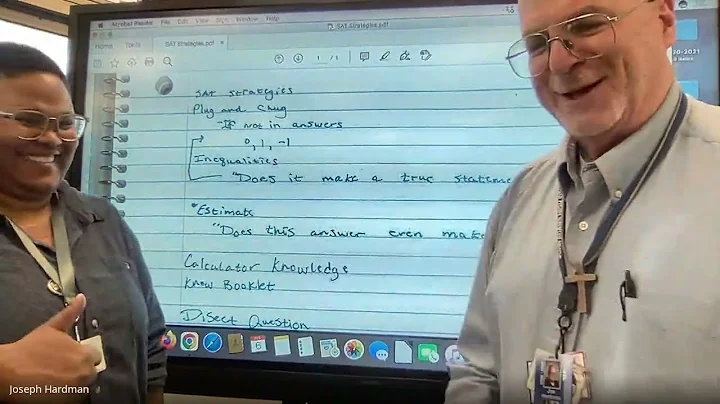 Acrobat Reader File Edit View Sign Window Help
SAT Strategies.pdf
Home Tools SAT Strategies.pdf ×
1 / 1
SAT strategies
Plug and Chug
If not in answers
0, 1, -1
Inequalities
"Does it make a true stateme
*Estimate
"Does this answer even make
Calculator Knowledge
Know Booklet
Disect Question
Joseph Hardman